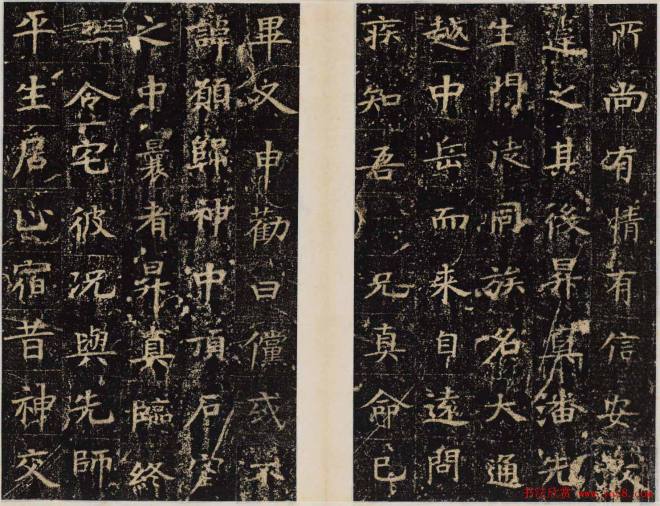 所尚有情有信安敢
違之其後昇真潘先
生門徒同族名大通
越中岳而来自遠問
疾知吾 兄真命已
畢又申勸曰儻或不
諱願歸神中頂石室
之中曩者昇真臨終
亦令宅彼況與先師
平生居止宿昔神交
书法欣赏 www.yac8.com